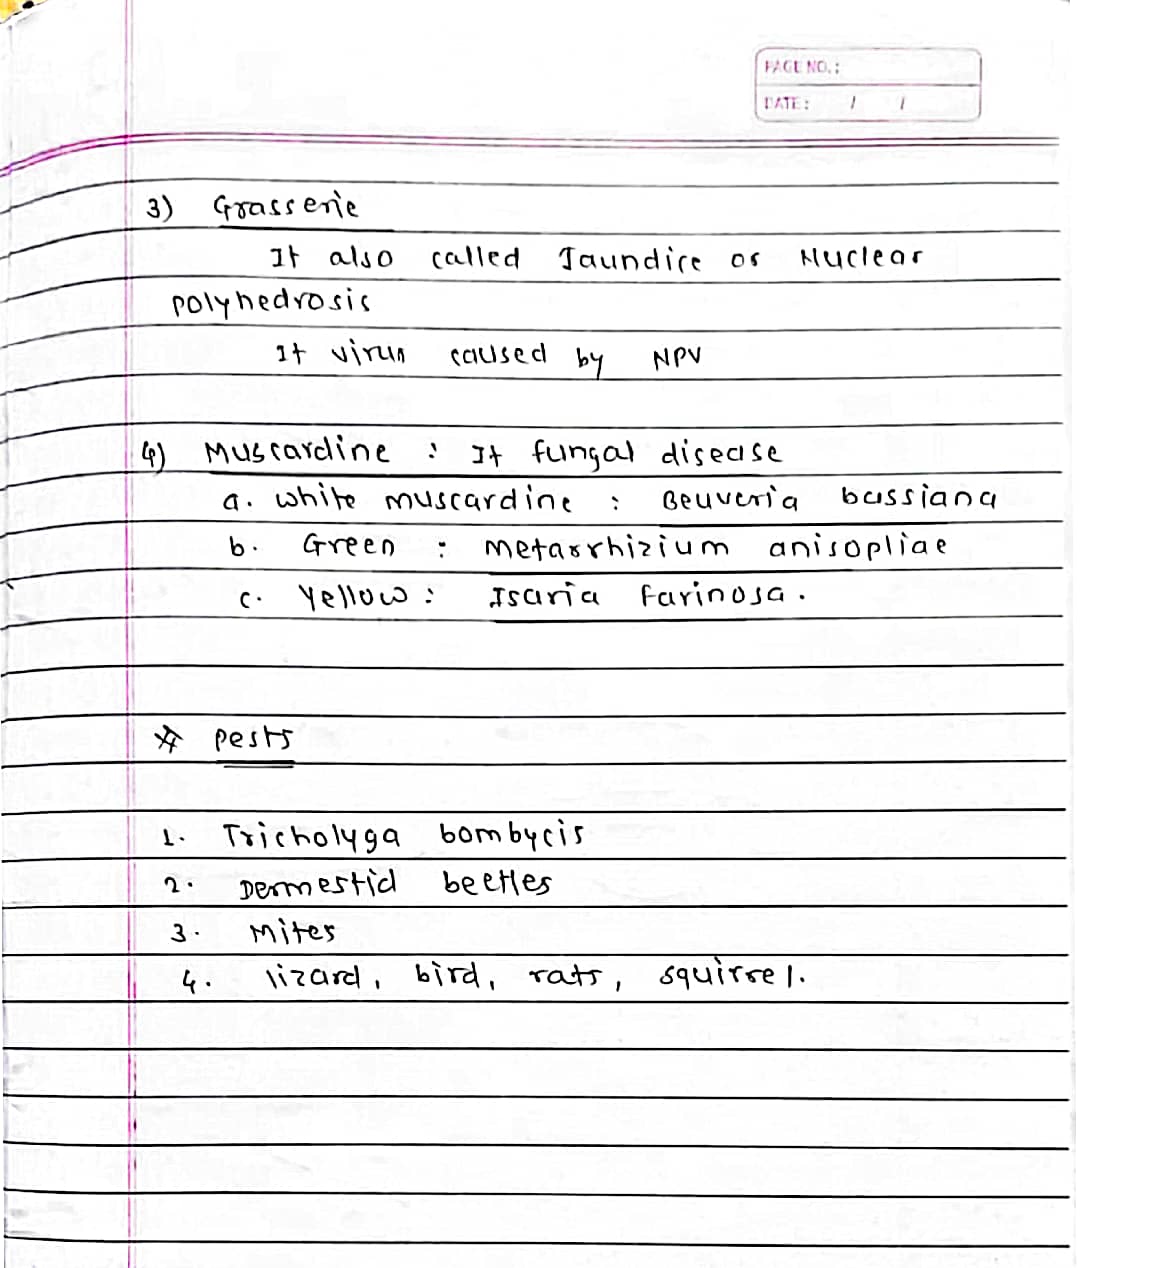 PAGE NO.:
DATE: / /
3) Grasserie
It also called Jaundice or Nuclear
polyhedrosis
It virus caused by NPV
4) Muscardine : It fungal disease
a. white muscardine : Beuveria bassiana
b. Green : metarrhizium anisopliae
c. Yellow : Isaria farinosa.
* pests
1. Tricholyga bombycis
2. Dermestid beetles
3. Mites
4. lizard, bird, rats, squirrel.